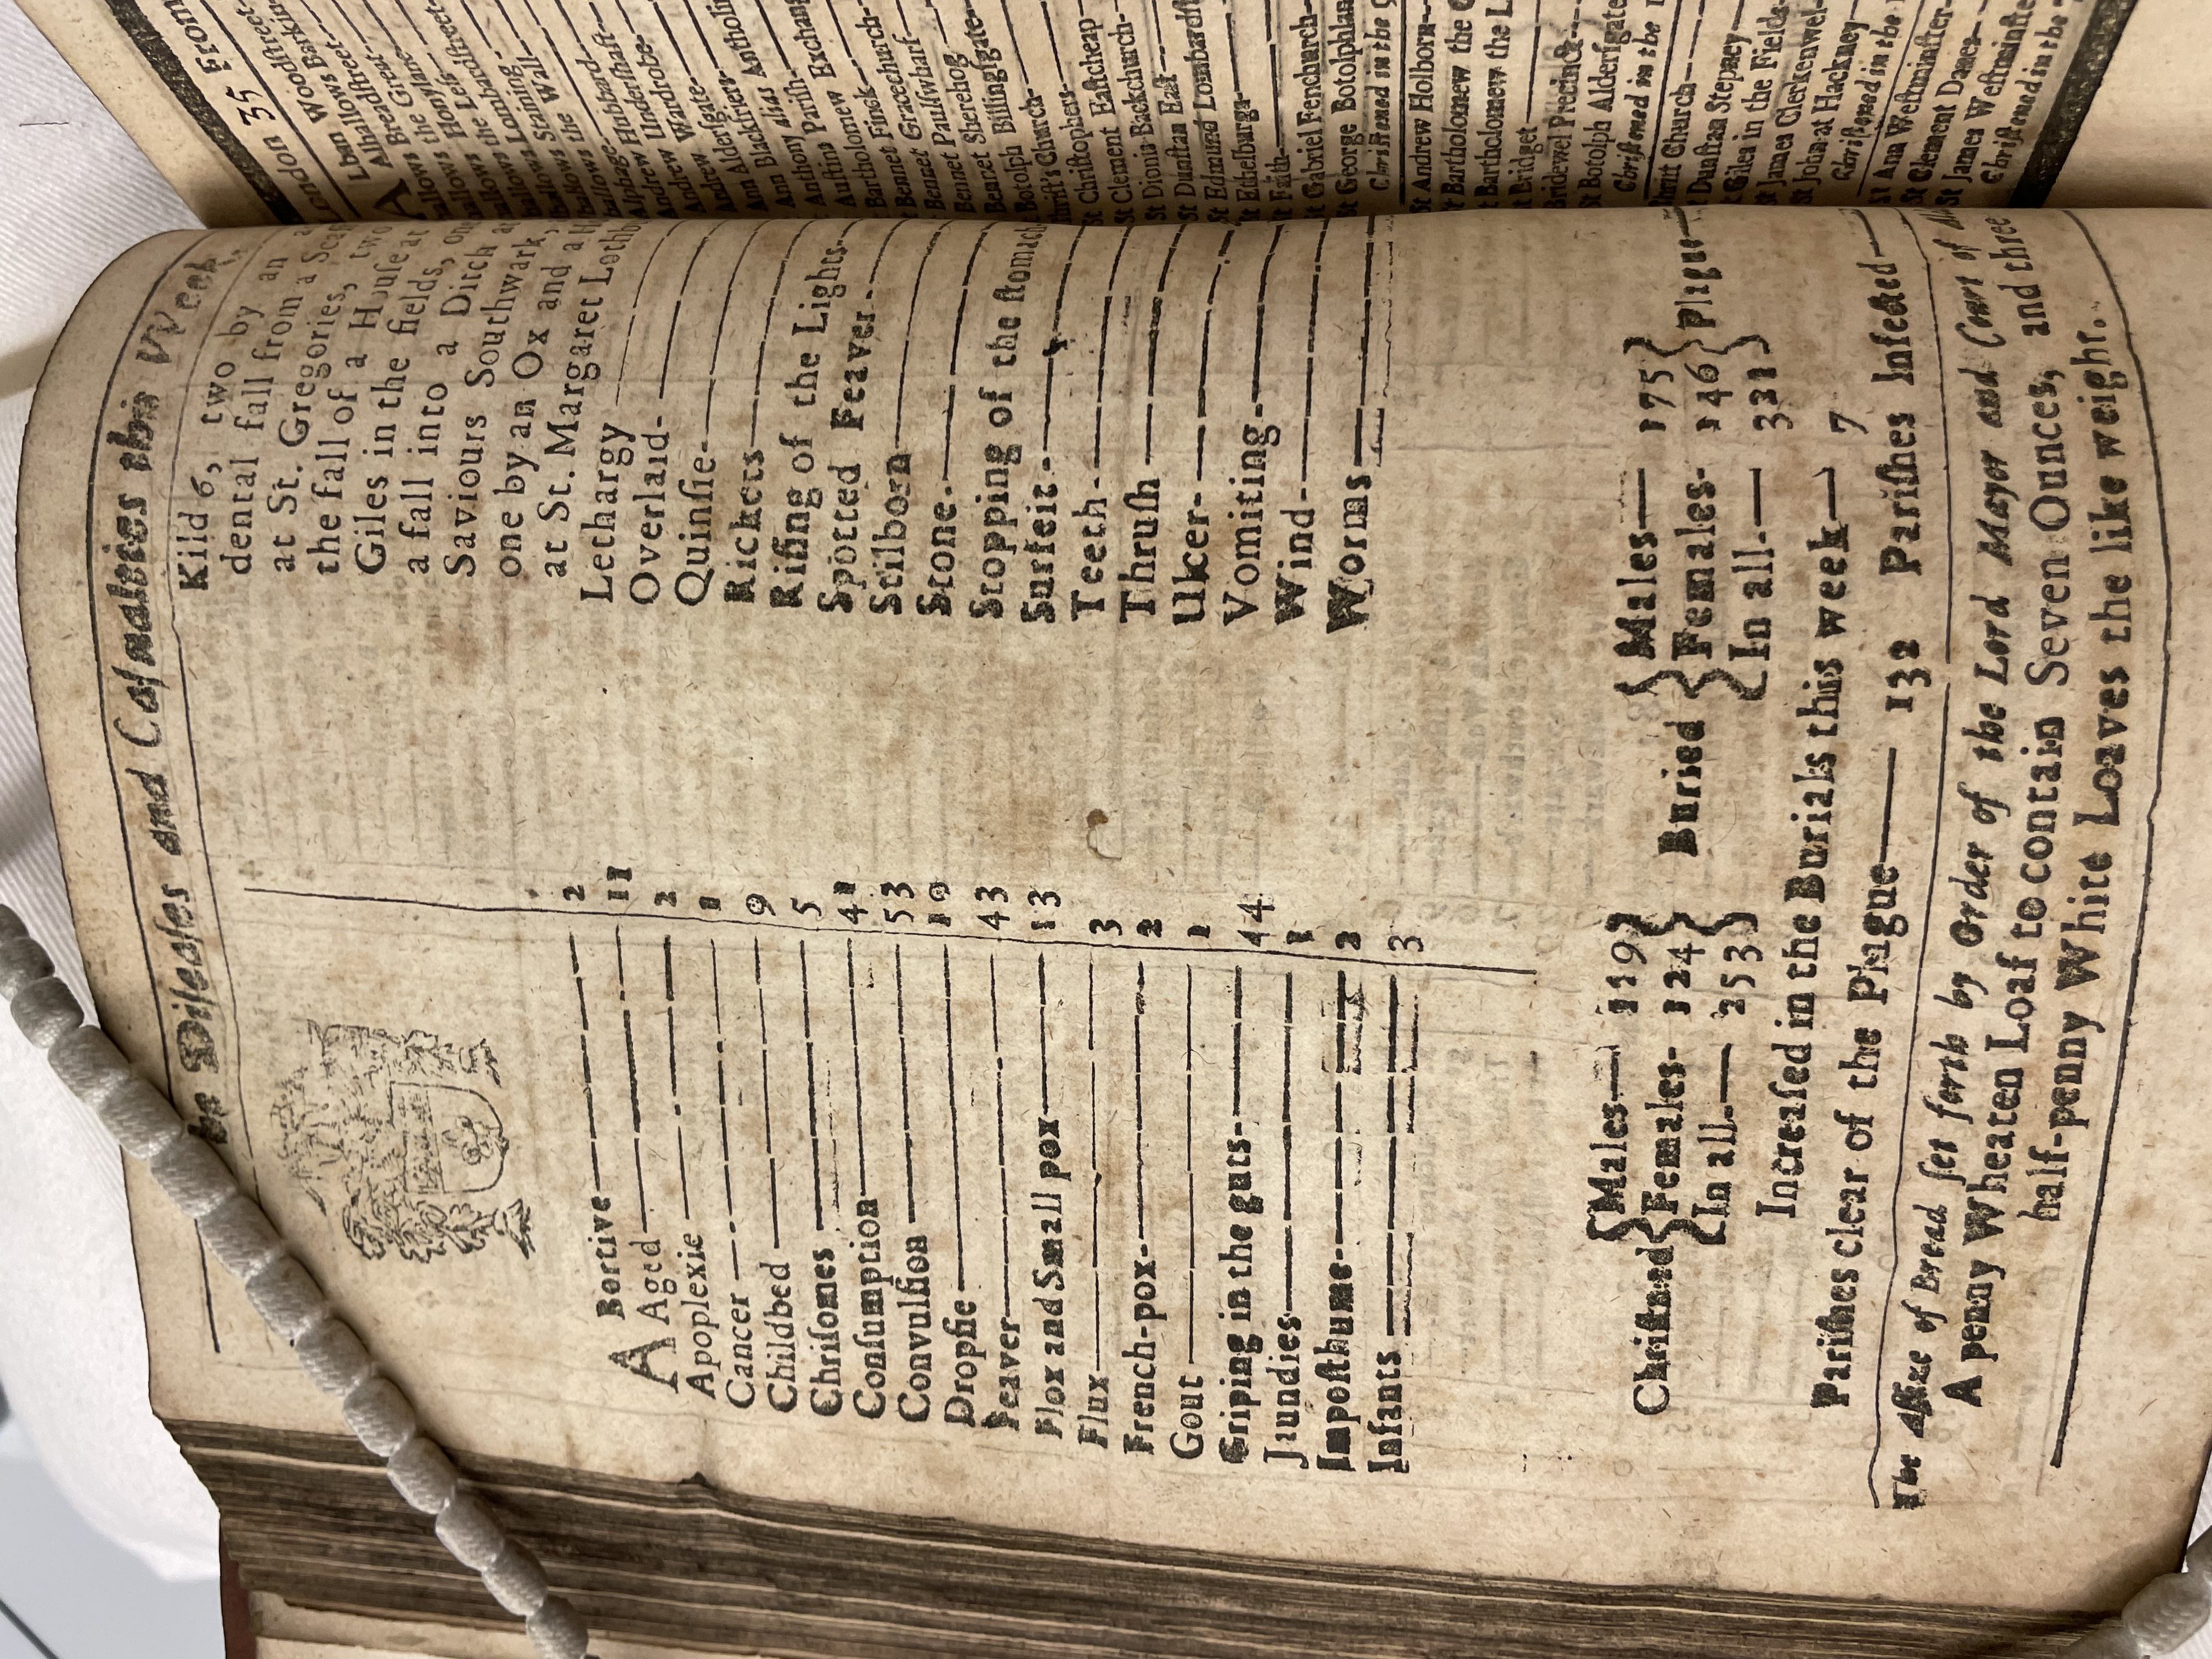 he Diseases and Casualties this Week.
A Bortive 2
Aged 11
Apoplexie 2
Cancer 1
Childbed 9
Chrisomes 5
Consumption 41
Convulsion 53
Dropsie 19
Feaver 43
Flox and Small pox 13
Flux 3
French-pox 2
Gout 1
Griping in the guts 44
Jaundies 1
Imposthume 2
Infants 3
Kild 6, two by an
dental fall from a
at St. Gregories, two
the fall of a House at
Giles in the fields, one
a fall into a Ditch a
Saviours Southwark,
one by an Ox and a
at St. Margaret Lothb
Lethargy
Overlaid
Quinsie
Rickets
Rising of the Lights
Spotted Feaver
Stilborn
Stone
Stopping of the stomach
Surfeit
Teeth
Thrush
Ulcer
Vomiting
Wind
Worms
Christned { Males 129 } Buried { Males 175 } Plague
Females 124 Females 146
In all 253 In all 321
Increased in the Burials this week 7
Parishes clear of the Plague 132 Parishes Infected
The Assize of Bread set forth by Order of the Lord Mayor and Court of
A penny Wheaten Loaf to contain Seven Ounces, and three
half-penny White Loaves the like weight.
London 35 From
Lban Woodstreet
Alhallows Barkin
Alhallows Breadstreet
Great
allows Honylane
allows Less
allows Lombardstreet
allows Loining
allows Stanning
allows the Wall
Alphage
Andrew Hubbard
Andrew Undershaft
Andrew Wardrobe
Ann Aldersgate
Ann Blackfriers
Anthony alias Antholin
Austins Parish
Bartholomew Exchang
Bennet Finck
Bennet Gracechurch
Bennet Paulswharf
Bennet Sherehog
Botolph Billingsgate
Christ's Church
St Christophers
St Clement Eastcheap
St Dionis Backchurch
St Dunstan East
St Edmund Lombardst
St Ethelburga
St Faith
St Gabriel Fenchurch
St George Botolphlan
Christned in the 9
St Andrew Holborn
St Bartholomew the G
St Bartholomew the L
St Bridget
Bridewel Precinct
St Botolph Aldersgate
Christned in the
Christ Church
St Dunstan Stepney
St Giles in the Fields
St James Clerkenwel
St John at Hackney
Christned in the
St Ann Westminster
St Clement Danes
St James Westminste
Christned in the